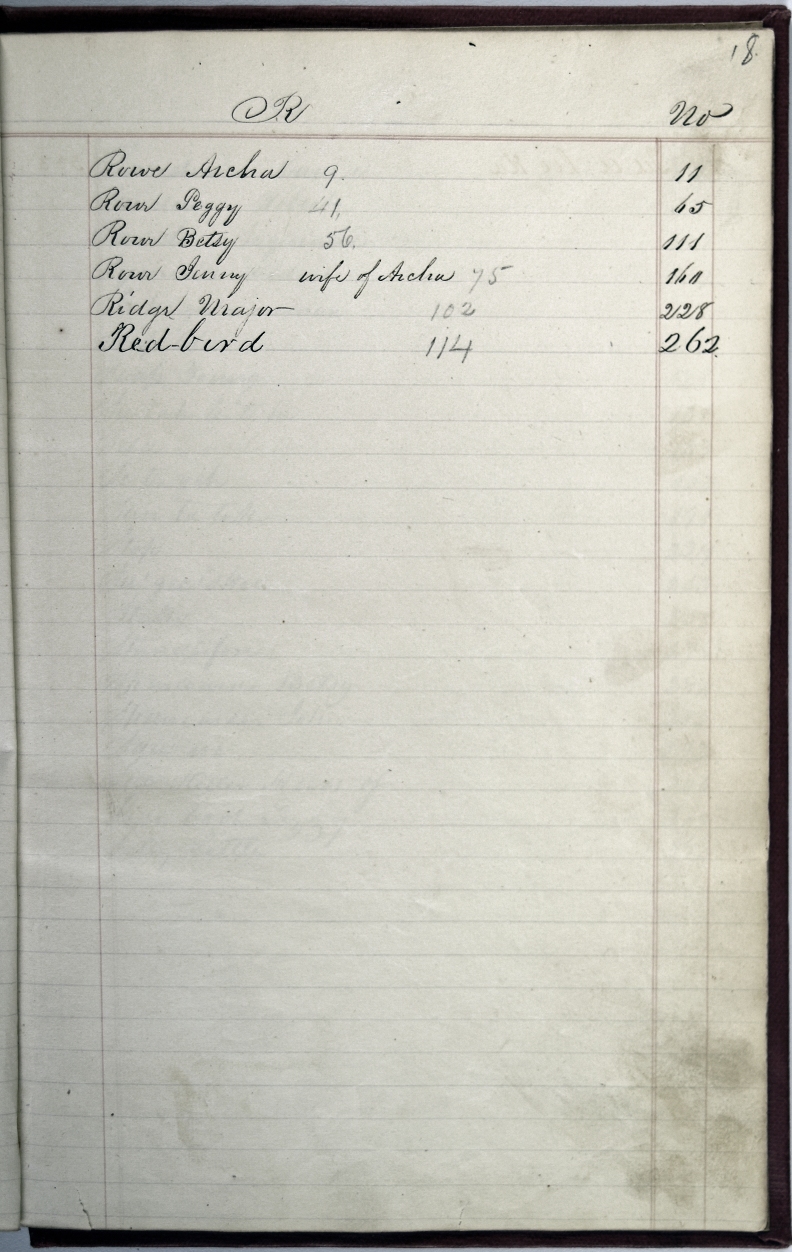 18
R No
Rowe Archa 9. 11
Rowe Peggy 41. 65
Rowe Betsy 56. 111
Rowe Jinny wife of Archa 75
Ridge Major 102 228
Red-bird 114 262